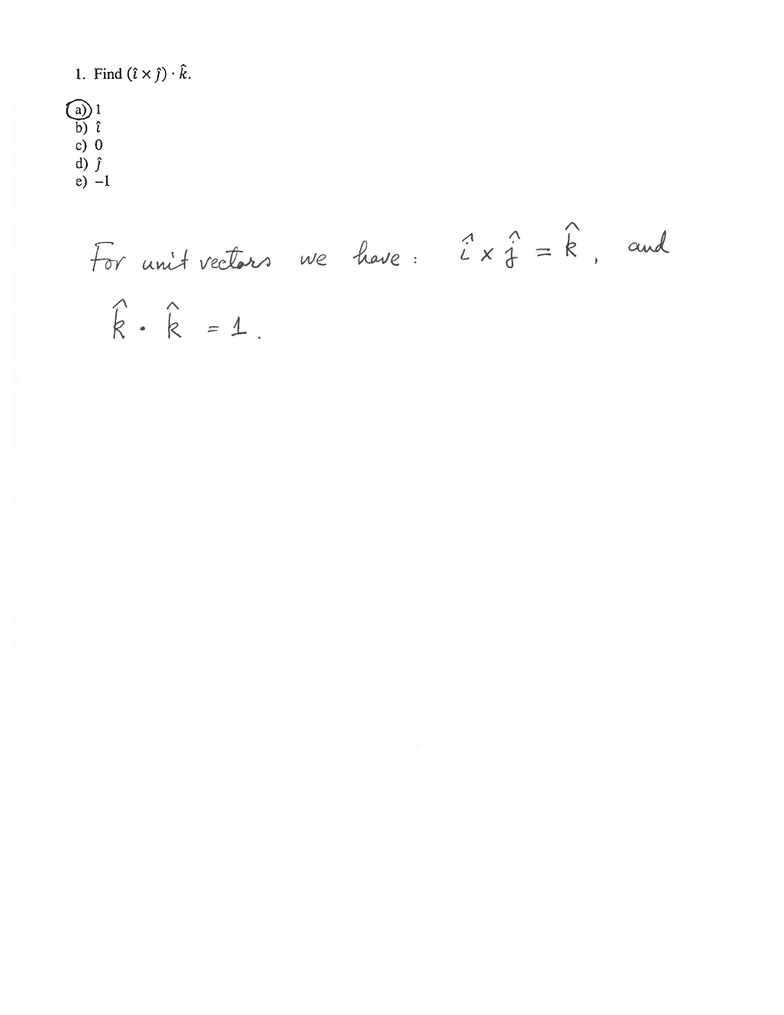 1. Find (î × ĵ) · k̂.
a) 1
b) î
c) 0
d) ĵ
e) −1
For unit vectors we have : î × ĵ = k̂ , and
k̂ · k̂ = 1 .